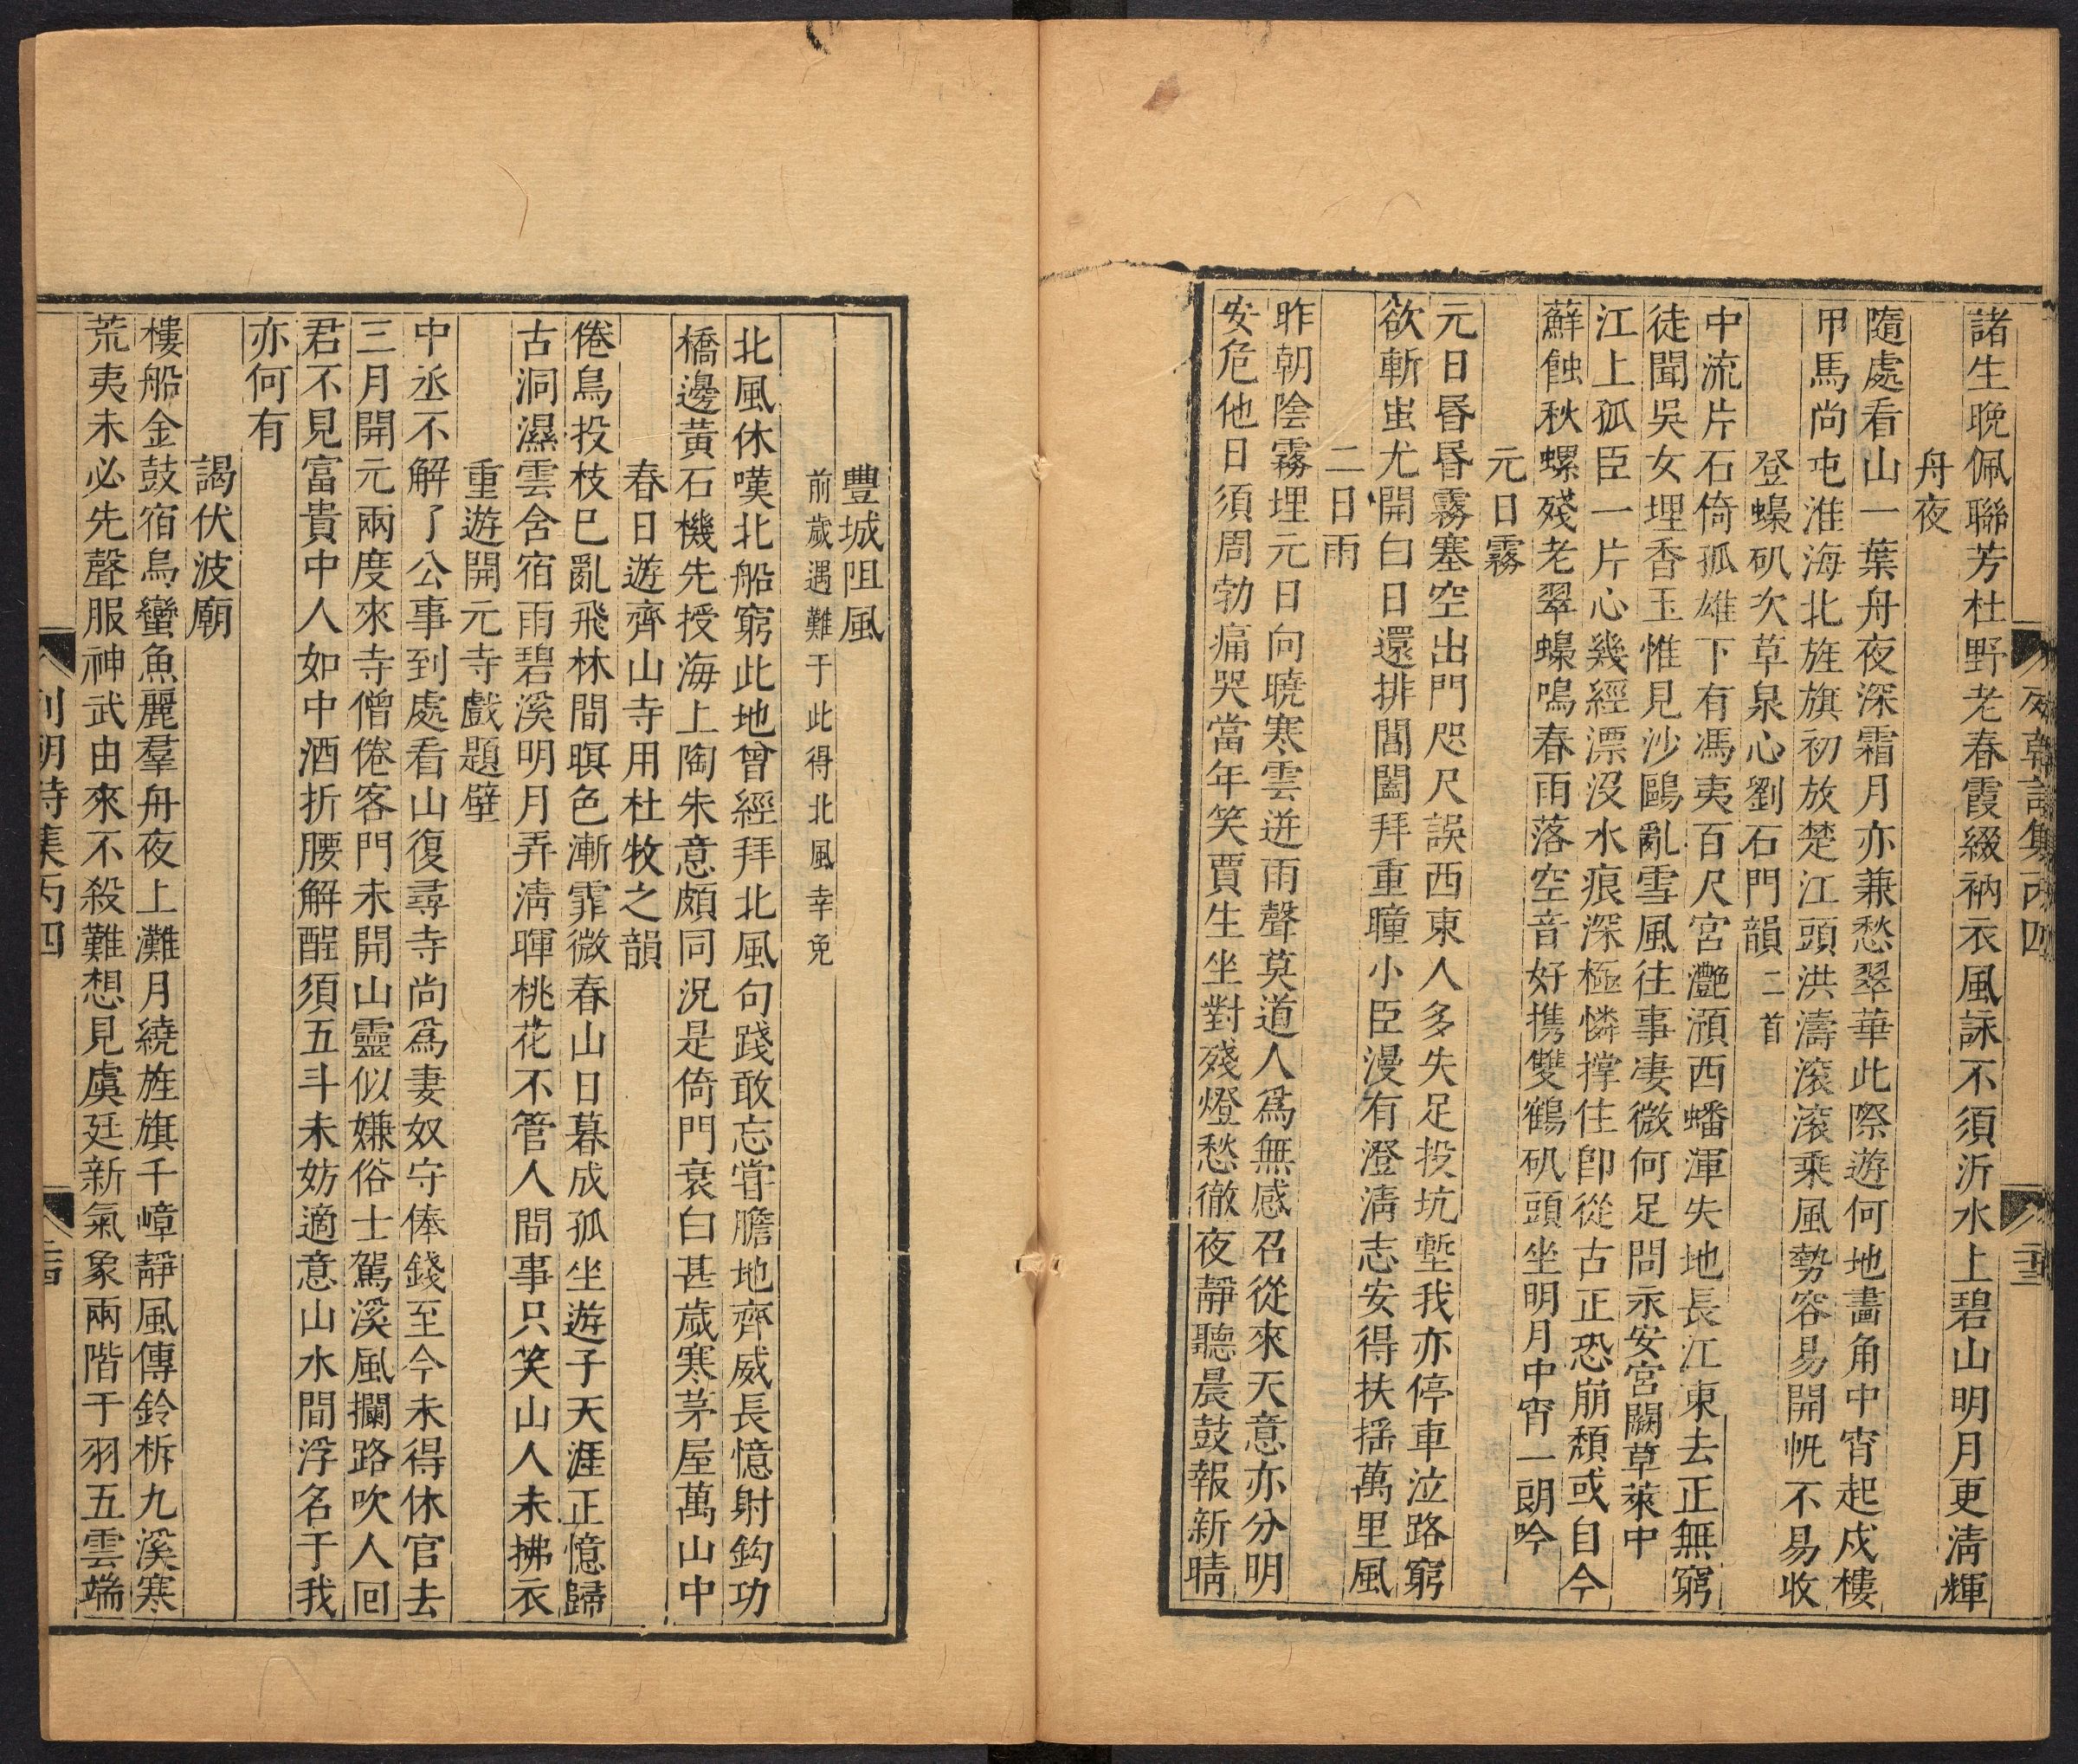 諸生晚佩聯芳杜野老春霞綴衲衣風詠不須沂水上碧山明月更淸輝
舟夜
隨處看山一葉舟夜深霜月亦兼愁翠華此際遊何地畵角中宵起戍樓
甲馬尚屯淮海北旌旗初放楚江頭洪濤滚滚乘風勢容易開帆不易收
登蟂矶次草泉心劉石門韻二首
中流片石倚孤雄下有馮夷百尺宮灔澦西蟠渾失地長江東去正無窮
徒聞吳女埋香玉惟見沙鷗亂雪風往事凄微何足問永安宮闕草萊中
江上孤臣一片心幾經漂沒水痕深極憐撑住卽從古正恐崩頽或自今
蘚蝕秋螺殘老翠蟂鳴春雨落空音好携雙鶴矶頭坐明月中宵一朗吟
元日霧
元日昏昏霧塞空出門咫尺誤西東人多失足投坑塹我亦停車泣路窮
欲斬蚩尤開白日還排閶闔拜重瞳小臣漫有澄淸志安得扶搖萬里風
二日雨
昨朝陰霧埋元日向曉寒雲迸雨聲莫道人爲無感召從來天意亦分明
安危他日須周勃痛哭當年笑賈生坐對殘燈愁徹夜靜聽晨鼓報新晴
豐城阻風
前歲遇難于此得北風幸免
北風休嘆北船窮此地曾經拜北風句踐敢忘嘗膽地齊威長憶射鈎功
橋邊黃石機先授海上陶朱意頗同況是倚門衰白甚歲寒茅屋萬山中
春日遊齊山寺用杜牧之韻
倦鳥投枝已亂飛林間暝色漸霏微春山日暮成孤坐遊子天涯正憶歸
古洞濕雲含宿雨碧溪明月弄淸暉桃花不管人間事只笑山人未拂衣
重遊開元寺戲題壁
中丞不解了公事到處看山復尋寺尚爲妻奴守俸錢至今未得休官去
三月開元兩度來寺僧倦客門未開山靈似嫌俗士駕溪風攔路吹人回
君不見富貴中人如中酒折腰解酲須五斗未妨適意山水間浮名于我
亦何有
謁伏波廟
樓船金鼓宿烏蠻魚麗羣舟夜上灘月繞旌旗千嶂靜風傳鈴柝九溪寒
荒夷未必先聲服神武由來不殺難想見虞廷新氣象兩階干羽五雲端